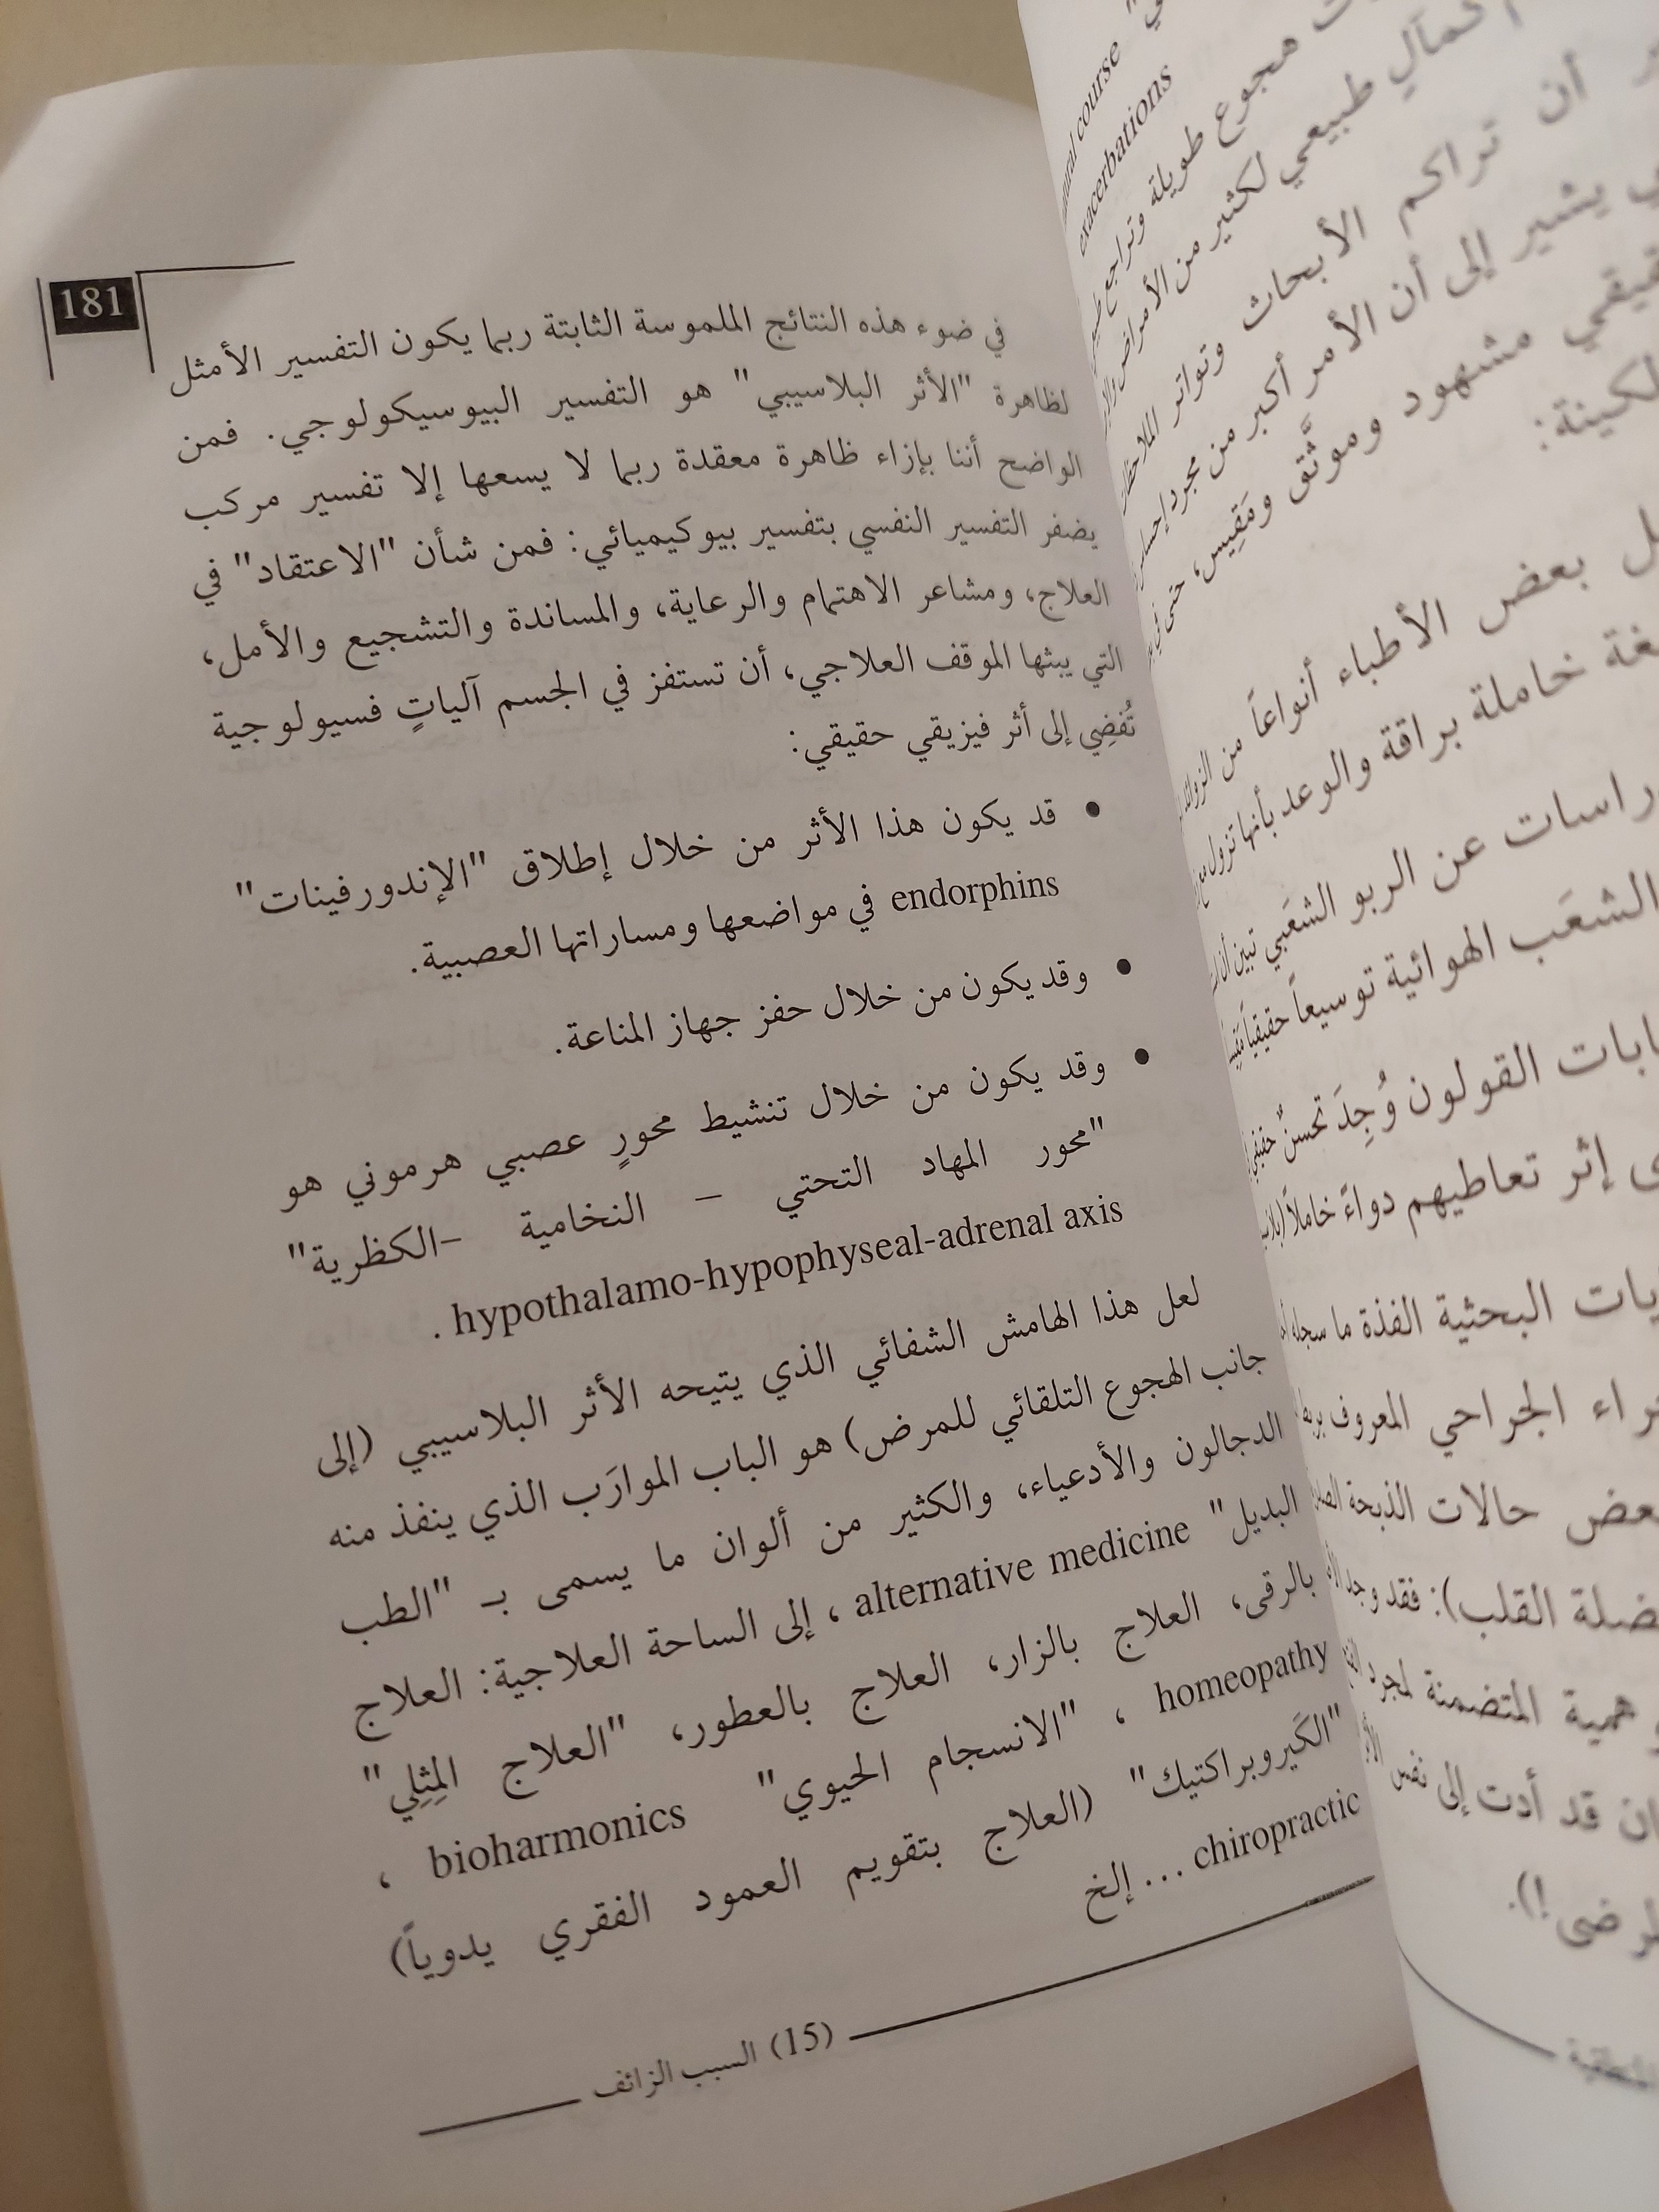 181
في ضوء هذه النتائج الملموسة الثابتة ربما يكون التفسير الأمثل
لظاهرة "الأثر البلاسيبي" هو التفسير البيوسيكولوجي. فمن
الواضح أننا بإزاء ظاهرة معقدة ربما لا يسعها إلا تفسير مركب
يضفر التفسير النفسي بتفسير بيوكيميائي: فمن شأن "الاعتقاد" في
العلاج، ومشاعر الاهتمام والرعاية، والمساندة والتشجيع والأمل،
التي يبثها الموقف العلاجي، أن تستفز في الجسم آلياتٍ فسيولوجية
تُفضِي إلى أثر فيزيقي حقيقي:
• قد يكون هذا الأثر من خلال إطلاق "الإندورفينات"
endorphins في مواضعها ومساراتها العصبية.
• وقد يكون من خلال حفز جهاز المناعة.
• وقد يكون من خلال تنشيط محورٍ عصبي هرموني هو
"محور المهاد التحتي – النخامية –الكظرية"
hypothalamo-hypophyseal-adrenal axis .
لعل هذا الهامش الشفائي الذي يتيحه الأثر البلاسيبي (إلى
جانب الهجوع التلقائي للمرض) هو الباب الموارَب الذي ينفذ منه
الدجالون والأدعياء، والكثير من ألوان ما يسمى بـ "الطب
البديل" alternative medicine ، إلى الساحة العلاجية: العلاج
بالرقى، العلاج بالزار، العلاج بالعطور، "العلاج المِثِلِي"
homeopathy ، "الانسجام الحيوي" bioharmonics ،
"الكَيروبراكتيك" (العلاج بتقويم العمود الفقري يدوياً)
chiropractic ... إلخ
(15) السبب الزائف
course
exacerbations
هجوع طويلة وتراجع
طبيعي لكثير من الأمراض
أن تراكم الأبحاث وتواتر
يشير إلى أن الأمر أكبر من مجرد
مشهود وموثَّق ومَقِيس، حتى
بعض الأطباء أنواعاً من
خاملة براقة والوعد بأنها تزول
عن الربو الشعَبي تبين أن
الشعَب الهوائية توسيعاً حقيقياً
القولون وُجِدَ تحسنٌ
إثر تعاطيهم دواءً خاملاً
البحثية الفذة ما سجله
الجراحي المعروف
حالات الذبحة
القلب): فقد وجد
المتضمنة لمجرد
قد أدت إلى نفس